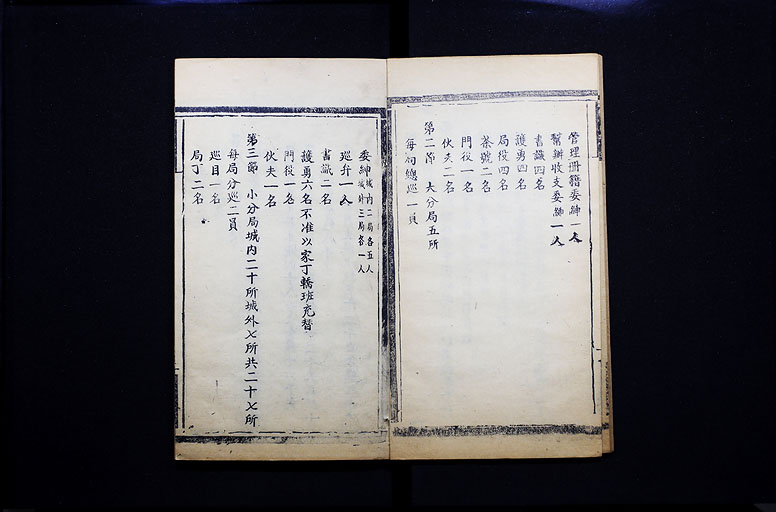 管理冊籍委紳一人
幫辦收支委紳一人
書識四名
護勇四名
局役四名
茶號二名
門役一名
伙夫二名
第二節　大分局五所
每局總巡一員
委紳城内二局各五人城外三局各一人
巡弁一人
書識二名
護勇六名不准以家丁轎班充替
門役一名
伙夫一名
第三節　小分局城内二十所城外七所共二十七所
每局分巡二員
巡目一名
局丁二名